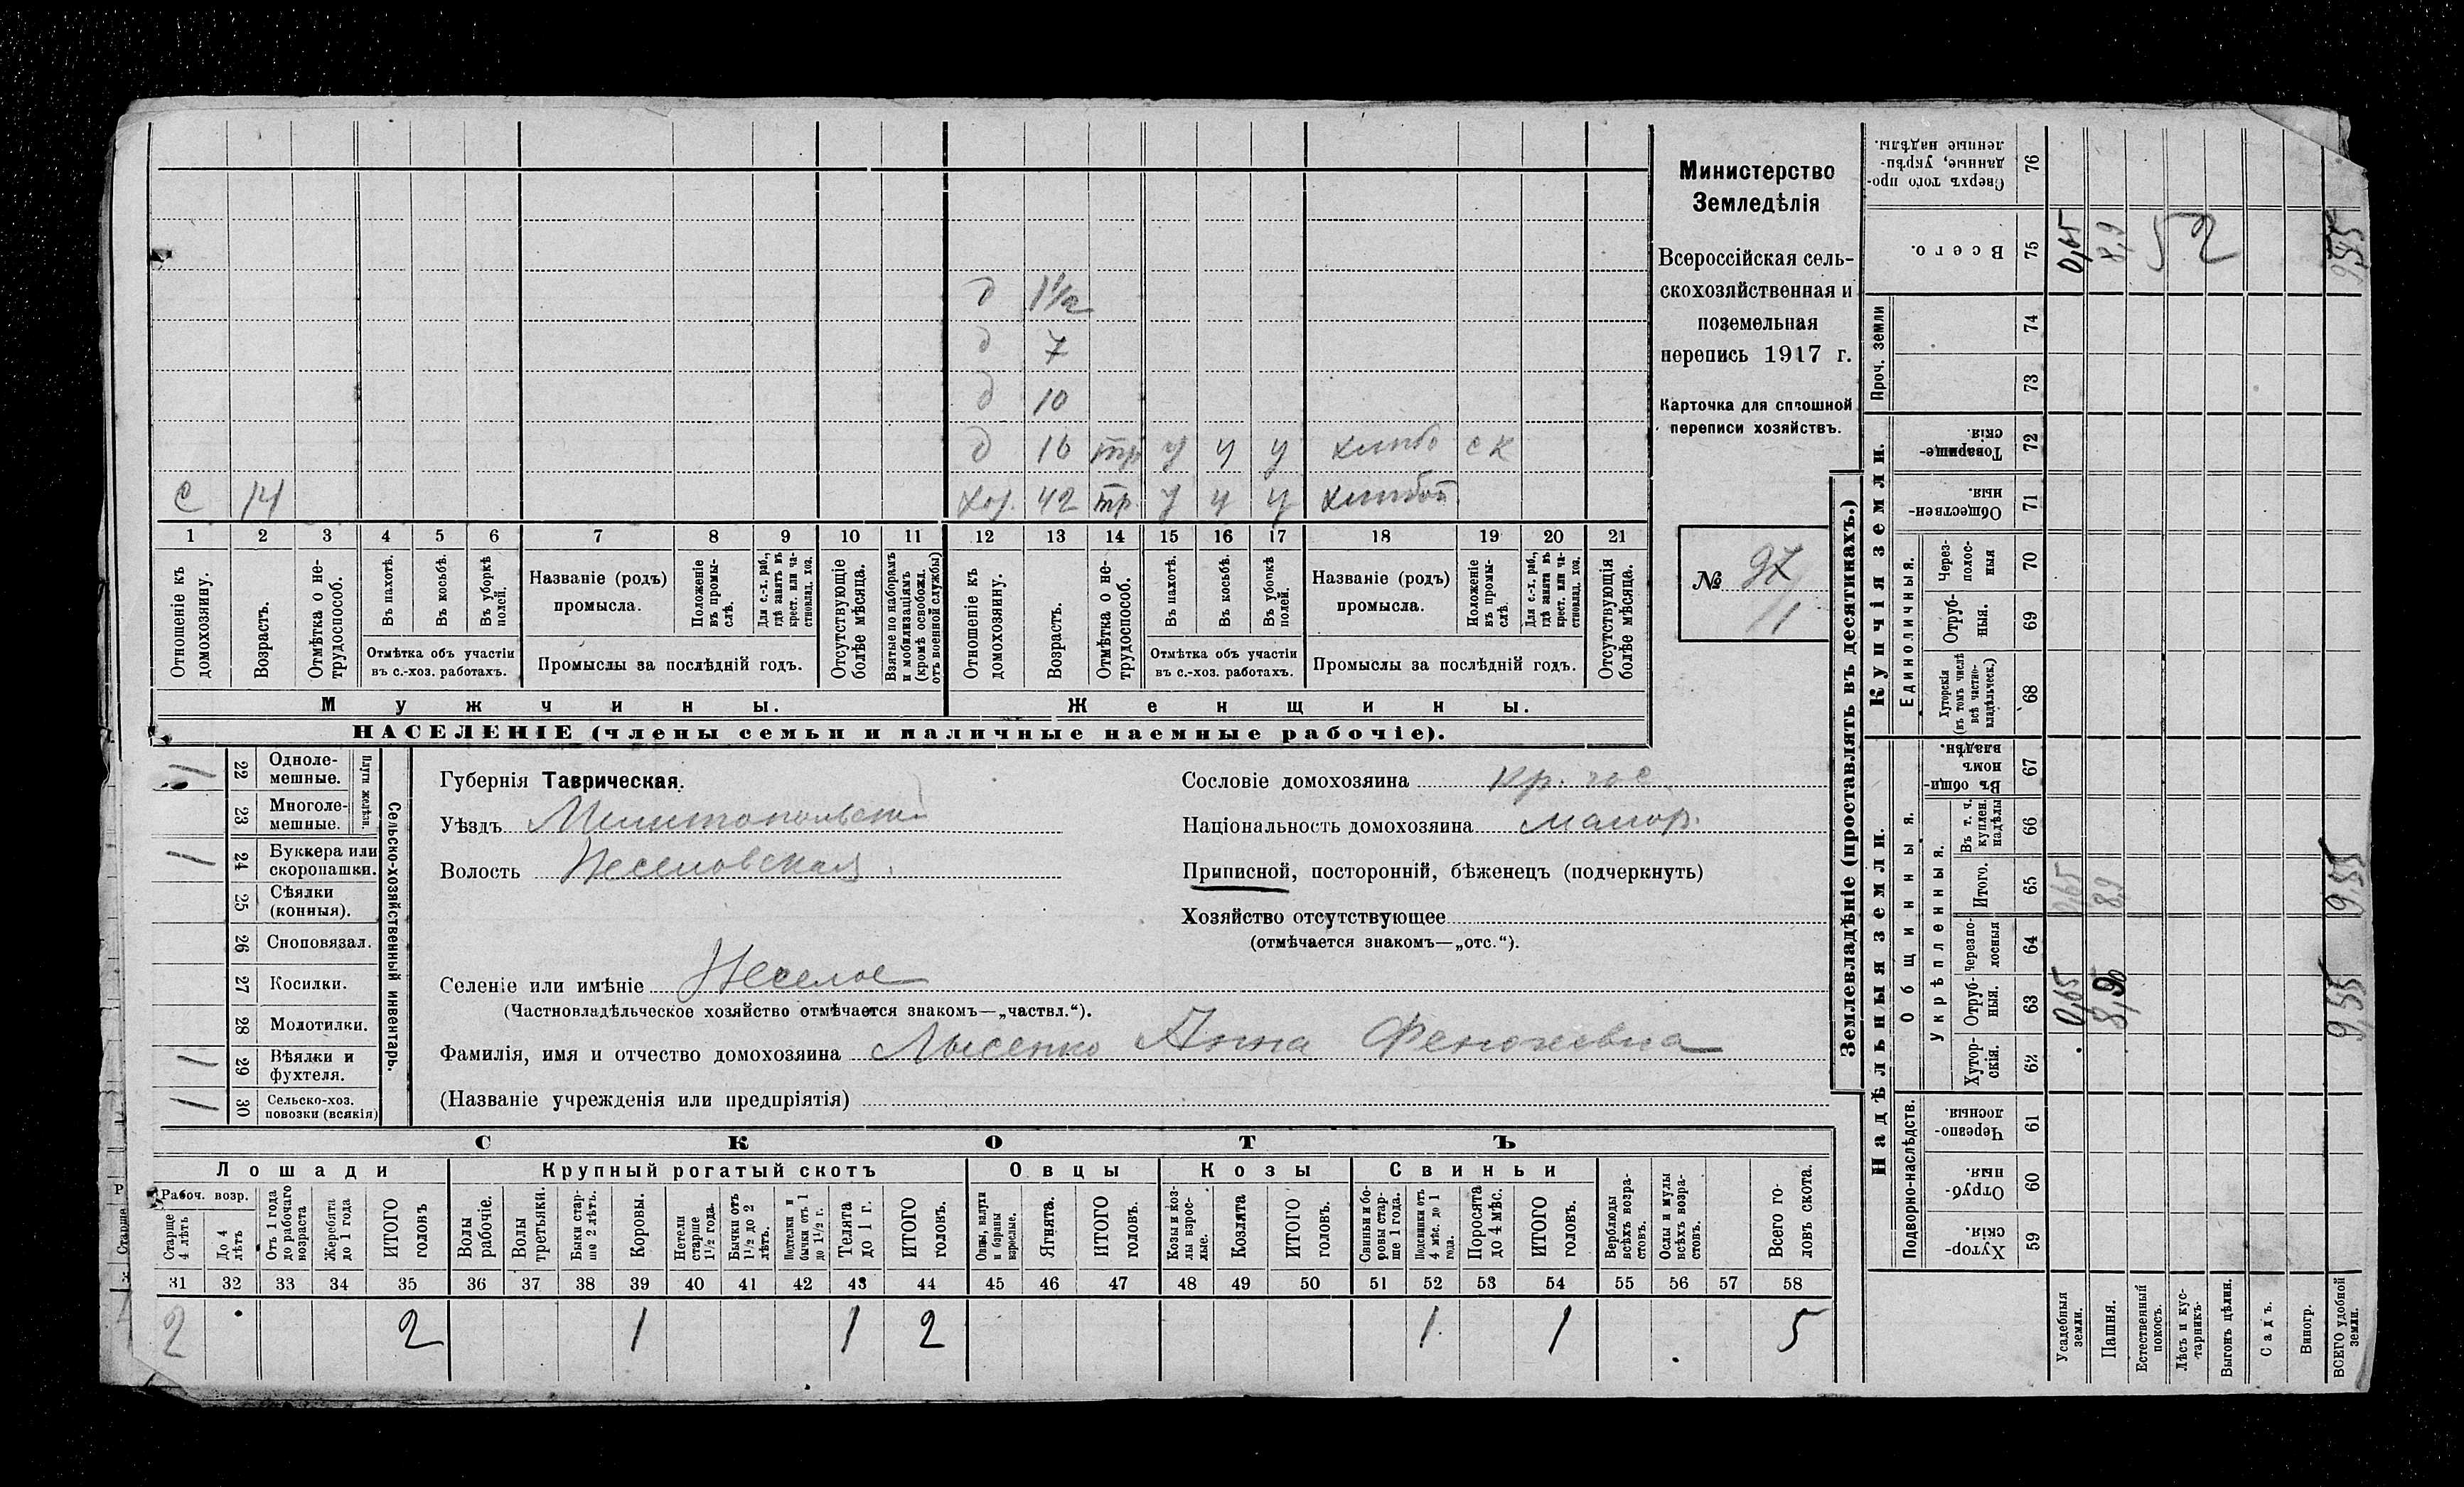 Министерство
Земледѣлія
Всероссійская сель-
скохозяйственная и
поземельная
перепись 1917 г.
Карточка для сплошной
переписи хозяйствъ.
№ 97
1
д 1½
д 7
д 10
д 16 тр у у у хлѣбо с к
С 14
хоз. 42 тр. у у у хлѣбоп.
1 2 3 4 5 6 7 8 9 10 11 12 13 14 15 16 17 18 19 20 21
Отношеніе къ домохозяину.
Возрастъ.
Отмѣтка о не-трудоспособ.
Въ пахотѣ.
Въ косьбѣ.
Въ уборкѣ полей.
Отмѣтка объ участіи
въ с.-хоз. работахъ.
Названіе (родъ)
промысла.
Положеніе въ промы-слѣ.
Для с.-х. раб., гдѣ занятъ въ крест. или ча-стновлад. хоз.
Промыслы за послѣдній годъ.
Отсутствующіе болѣе мѣсяца.
Взятые по наборамъ и мобилизаціямъ (кромѣ освобожд. отъ военной службы)
Отношеніе къ домохозяину.
Возрастъ.
Отмѣтка о не-трудоспособ.
Въ пахотѣ.
Въ косьбѣ.
Въ уборкѣ полей.
Отмѣтка объ участіи
въ с.-хоз. работахъ.
Названіе (родъ)
промысла.
Положеніе въ промы-слѣ.
Для с.-х. раб., гдѣ занята въ крест. или ча-стновлад. хоз.
Промыслы за послѣдній годъ.
Отсутствующія болѣе мѣсяца.
Мужчины. Женщины.
НАСЕЛЕНІЕ (члены семьи и наличные наемные рабочіе).
Сельско-хозяйственный инвентарь.
Плуги желѣзн.
1 22 Одноле-мешные.
23 Многоле-мешные.
1 24 Буккера или скоропашки.
25 Сѣялки (конныя).
26 Сноповязал.
27 Косилки.
28 Молотилки.
1 29 Вѣялки и фухтеля.
1 30 Сельско-хоз. повозки (всякія)
Губернія Таврическая.
Уѣздъ Мелитопольскій
Волость Веселовская.
Селеніе или имѣніе Веселое
(Частновладѣльческое хозяйство отмѣчается знакомъ—„частвл.“).
Фамилія, имя и отчество домохозяина Лысенко Анна
(Названіе учрежденія или предпріятія)
Сословіе домохозяина кр.
Національность домохозяина малор.
Приписной, посторонній, бѣженецъ (подчеркнуть)
Хозяйство отсутствующее
(отмѣчается знакомъ—„отс.“).
СКОТЪ
Лошади Крупный рогатый скотъ Овцы Козы Свиньи
Рабоч. возр.
Старше 4 лѣтъ
До 4 лѣтъ
Отъ 1 года до рабочаго возраста
Жеребята до 1 года
ИТОГО головъ
Волы рабочіе.
Волы третьяки.
Быки стар-ше 2 лѣтъ.
Коровы.
Нетели старше 1½ года.
Бычки отъ 1½ до 2 лѣтъ.
Подтелки и бычки отъ 1 до 1½ г.
Телята до 1 г.
ИТОГО головъ.
Овцы, валухи и бараны взрослые.
Ягнята.
ИТОГО головъ.
Козы и коз-лы взрос-лые.
Козлята
ИТОГО головъ.
Свиньи и бо-ровы стар-ше 1 года.
Подсвинки отъ 4 мѣс. до 1 года.
Поросята до 4 мѣс.
ИТОГО головъ.
Верблюды всѣхъ возра-стовъ.
Ослы и мулы всѣхъ возра-стовъ.
Всего го-ловъ скота.
31 32 33 34 35 36 37 38 39 40 41 42 43 44 45 46 47 48 49 50 51 52 53 54 55 56 57 58
2 2 1 1 2 1 1 5
Землевладѣніе (проставлять въ десятинахъ.)
Надѣльныя земли. Купчія земли. Проч. земли
Подворно-наслѣдств.
Общинныя.
Укрѣпленныя.
Единоличныя.
Хутор-скія. 59
Отруб-ныя. 60
Черезпо-лосныя. 61
Хутор-скія. 62
Отруб-ныя. 63
Черезпо-лосныя 64
Итого. 65
Въ т. ч. куплен. надѣлы 66
Въ общин-номъ владѣн. 67
Хуторскія (въ томъ числѣ всѣ частно-владѣльческ.) 68
Отруб-ныя. 69
Через-полос-ныя 70
Обществен-ныя. 71
Товарище-скія. 72
73
74
Всего. 75
Сверхъ того про-данные, укрѣп-ленные надѣлы. 76
Усадебныя земли. 0,65 0,65 0,65
Пашня. 8,9 8,9 8,9
Естественный покосъ.
Лѣсъ и кус-тарникъ.
Выгонъ цѣлин.
Садъ.
Виногр.
ВСЕГО удобной земли. 9,55 9,55 9,55
52